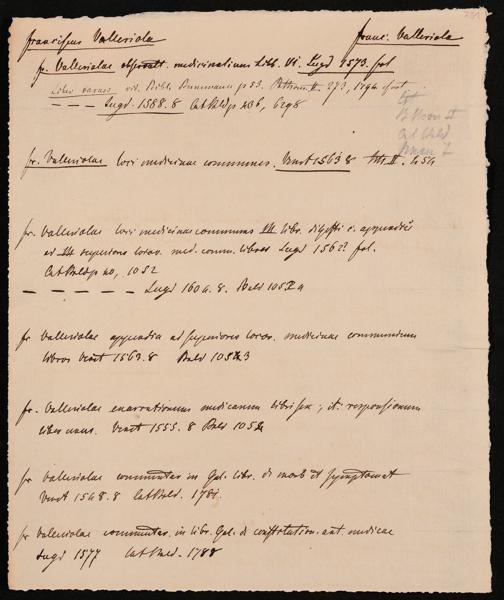 Franciscus Valleriola Franc. Valleriola
fr. Valleriolae observatt. medicinalium libb. VI. Lugd 1573. fol
Liber rarus vid. Bibl. p 53. 273,
— — — Lugd. 1588. 8 Cat Bald p
fr. Valleriolae loci medicinae communes. Venet 1563 8
fr. Valleriolae loci medicinae communes III libr. digesti c. appendix
ad III superiores locor. med. comm. libros Lugd 1562? fol.
Cat Bald p 1052
— — — — — Lugd 1604. 8. Bald
fr Valleriolae appendix ad superiores locor. medicinae communium
libros Venet 1563. 8 Bald
fr. Valleriolae enarrationum medicinalium libri sex; it. responsionum
liber unus. Venet 1555. 8 Bald
fr Valleriolae commentar in Gal. libr. de morb et symptomat
Venet 1548. 8 Cat Bald. 1781.
fr Valleriolae commentar. in libr. Gal. de constitution. art. medicae
Lugd 1577 Cat Bald. 1788